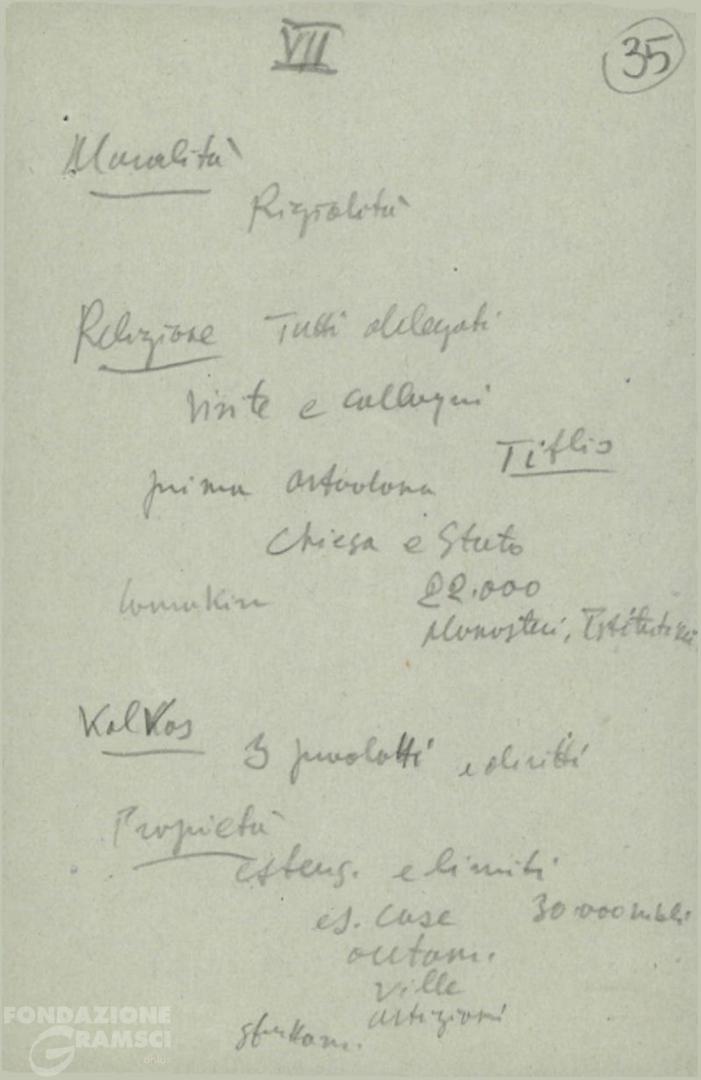 VII
35
Moralità
Rigidità
Religione Tutti delegati
visite e colloqui
Tiflis
prima ortodossa
Chiesa e Stato
Lomakin
22.000
Monasteri, Istituti
Kolkos
3 prodotti e diritti
Proprietà
estens. e limiti
es. case 30.000 rubli
autom.
ville
artigiani
sfruttam.
FONDAZIONE
GRAMSCI
onlus